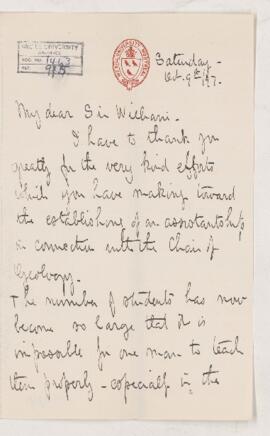 McGILL UNIVERSITY
ARCHIVES
ACC. NO. 1463
REF.
McGILL UNIVERSITY MONTREAL
Saturday -
Oct. 9th /97.
My dear Sir William.
I have to thank you
greatly for the very kind efforts
which you have making toward
the establishing of an assistantship
in connection with the Chair of
Geology.
The number of students has now
become so large that it is
impossible for one man to teach
them properly - especially in the